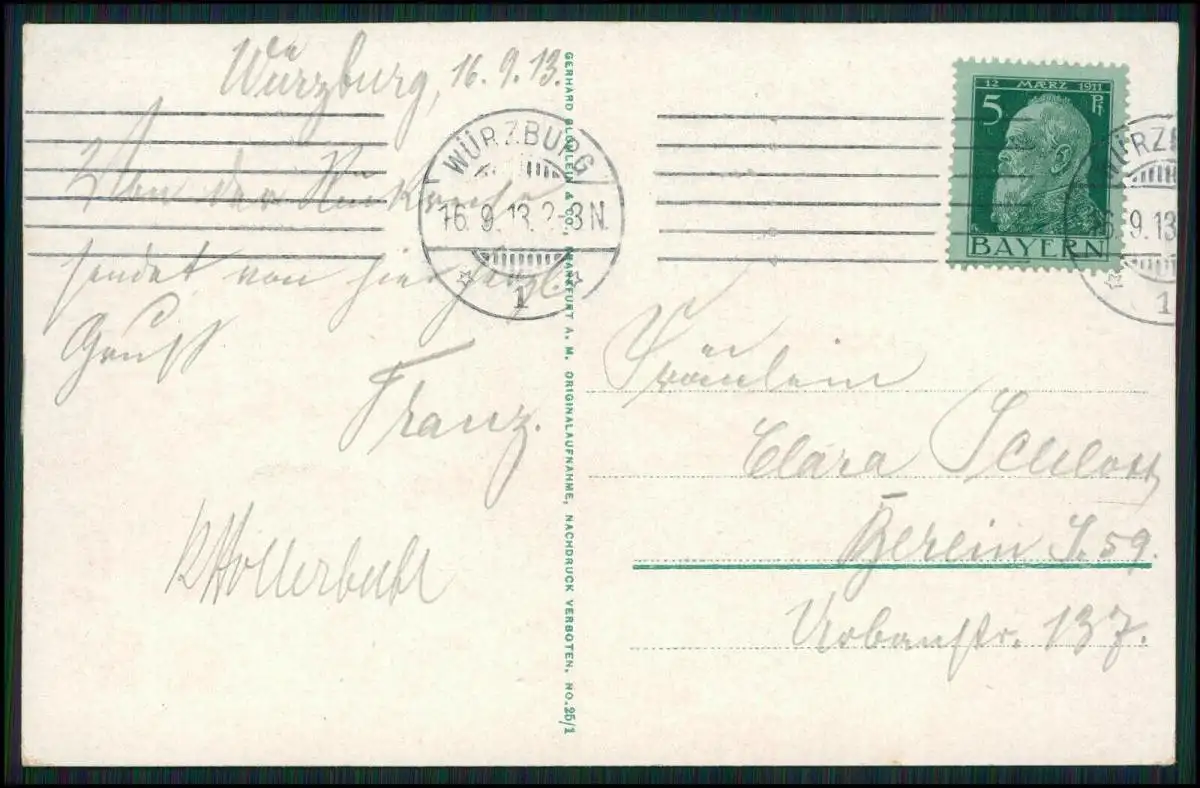 Würzburg, 16.9.13.
Von der Rückreise
sendet von hier herzl.
Gruß
Franz.
WÜRZBURG
16.9.13.2-3N.
1
GERHARD BLÜMLEIN & CO. FRANKFURT A. M. ORIGINALAUFNAHME, NACHDRUCK VERBOTEN. NO. 25/1
12 MÆRZ 1911
5 Pf
BAYERN
WÜRZB
16.9.13
1
Fräulein
Clara Schlott
Berlin S.59.
Urbanstr. 137.